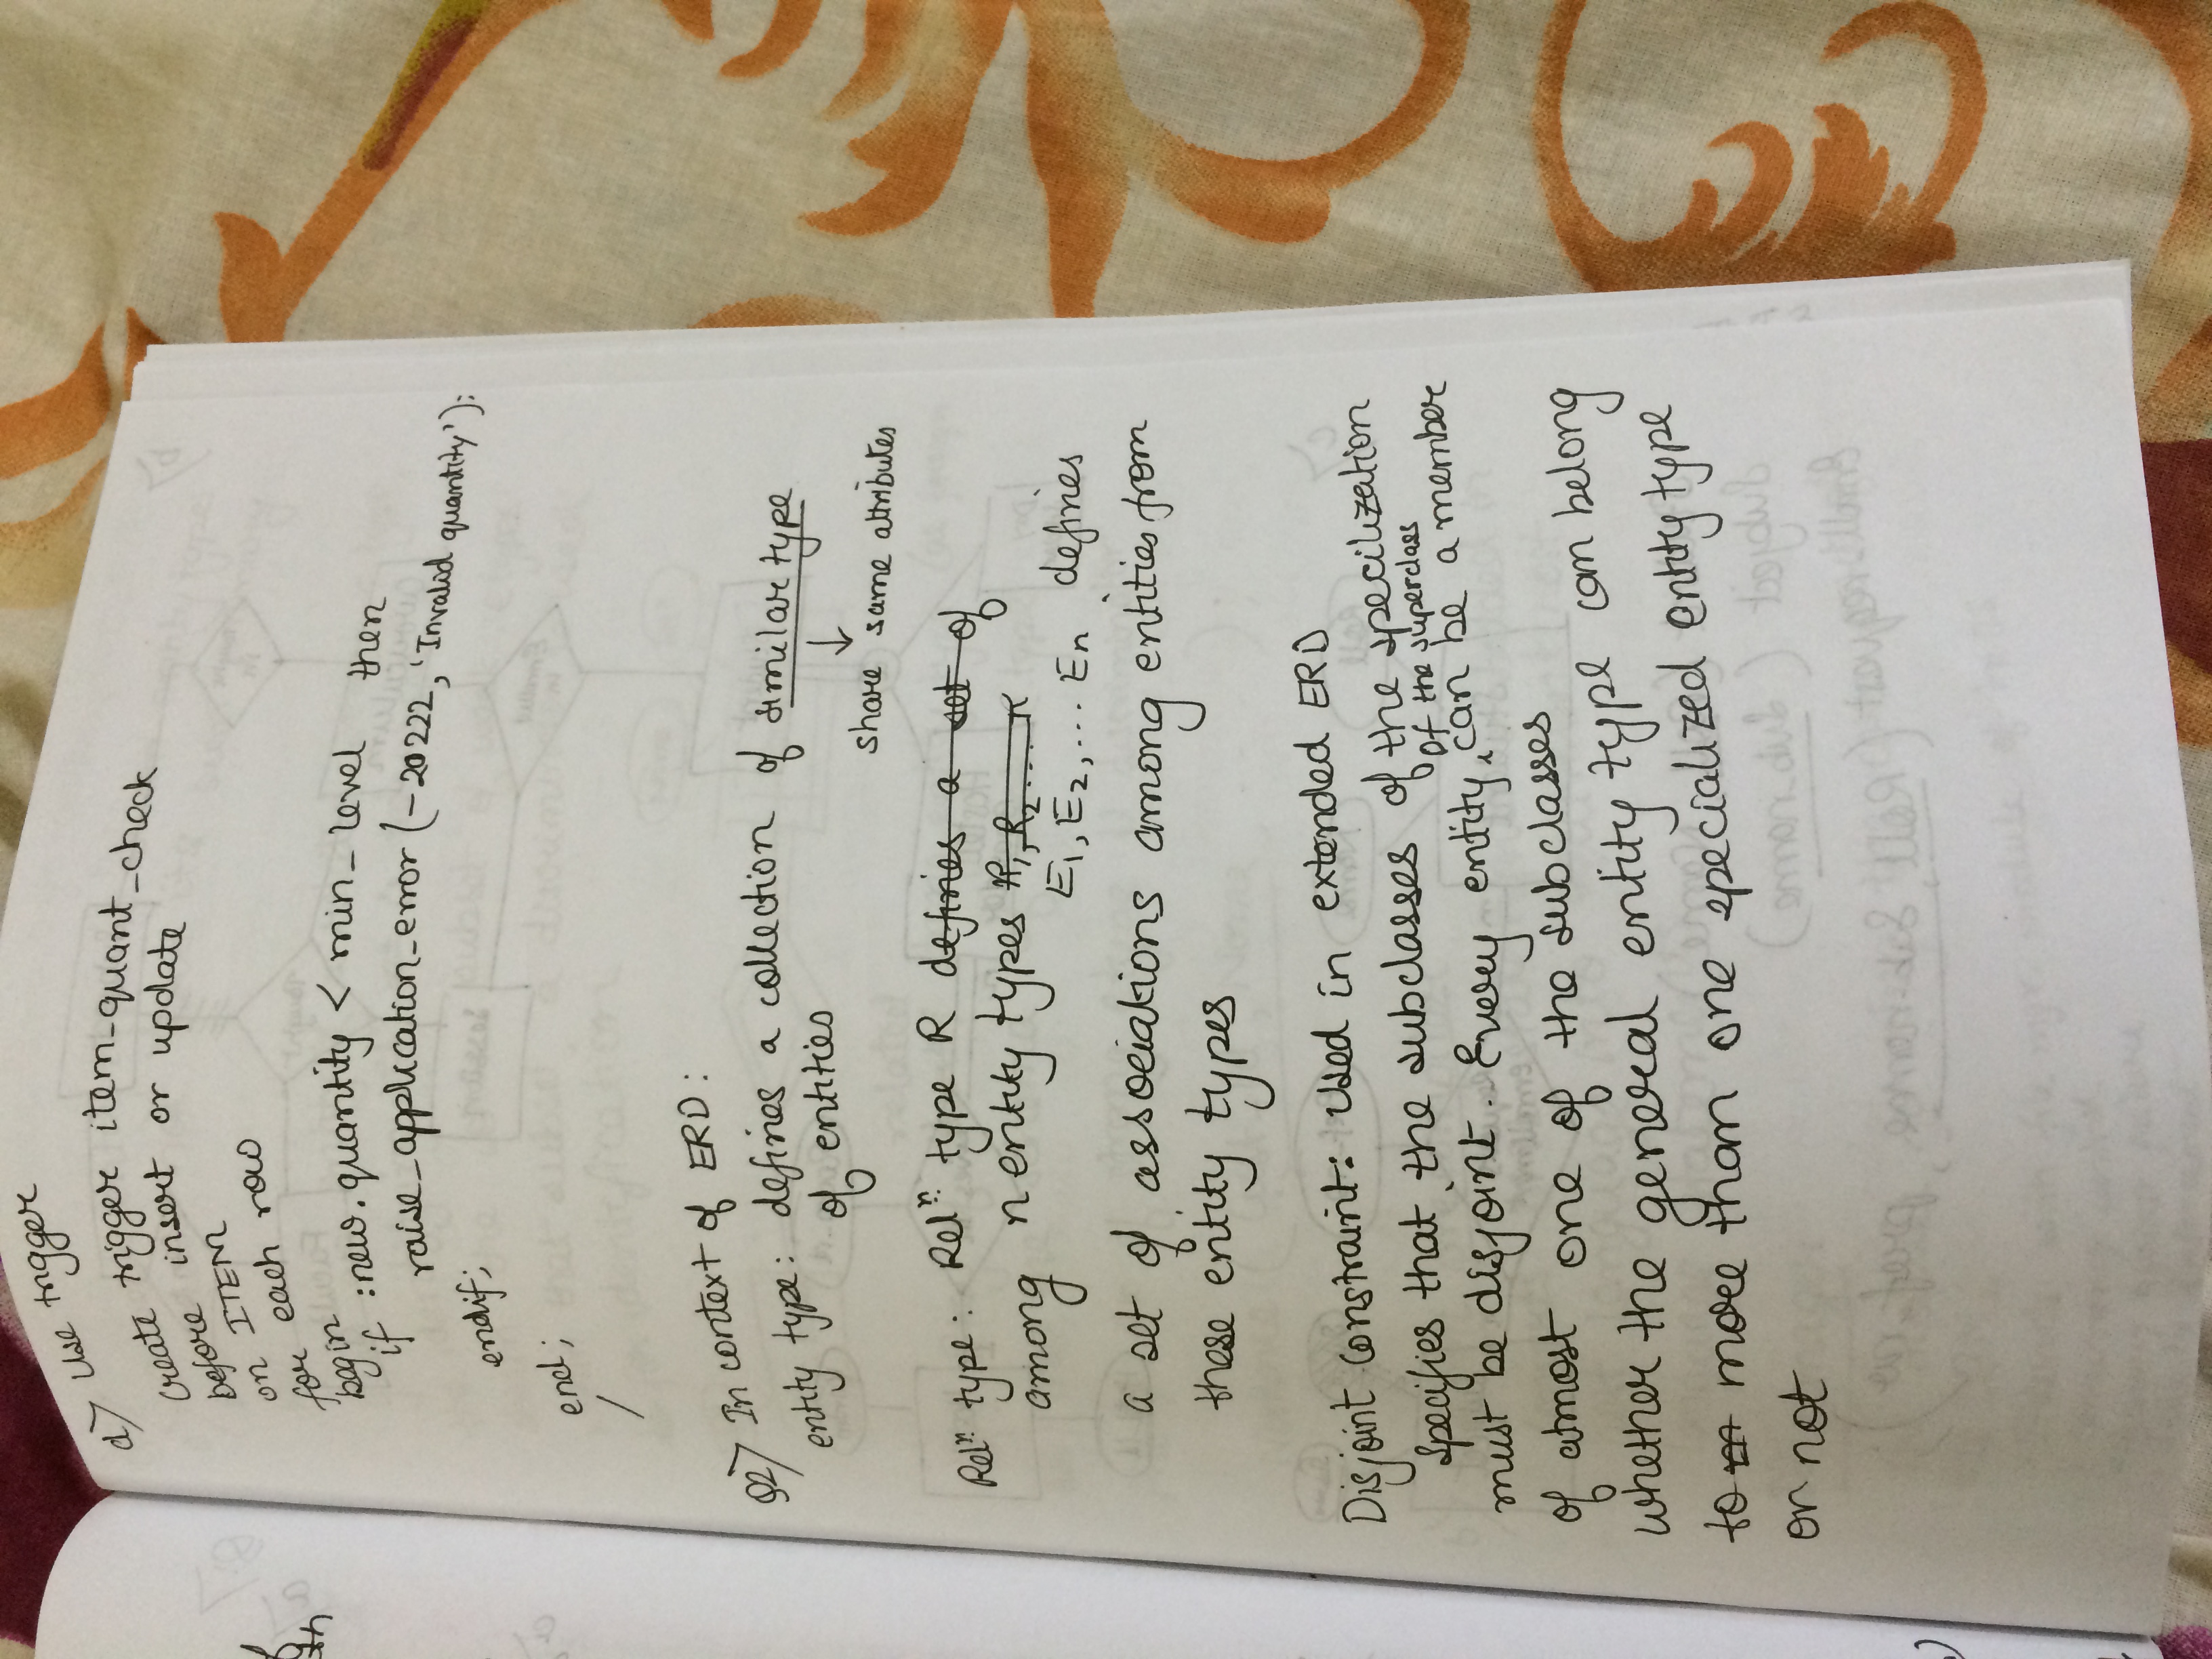 d) Use trigger
create trigger item_quant_check
before insert or update
on ITEM
for each row
begin
if :new.quantity < min_level then
raise_application_error (-20222, 'Invalid quantity');
endif;
end;
/
Q2) In context of ERD:
entity type: defines a collection of similar type
of entities
↓
share same attributes
Relⁿ type: Relⁿ type R defines a set of
among n entity types R1, R2 ...
E1, E2, ... En defines
a set of associations among entities from
these entity types
Disjoint constraint: Used in extended ERD
specifies that the subclasses of the specilization
of the superclass
must be disjoint. Every entity, can be a member
of atmost one of the subclasses
whether the general entity type can belong
to more than one specialized entity type
or not